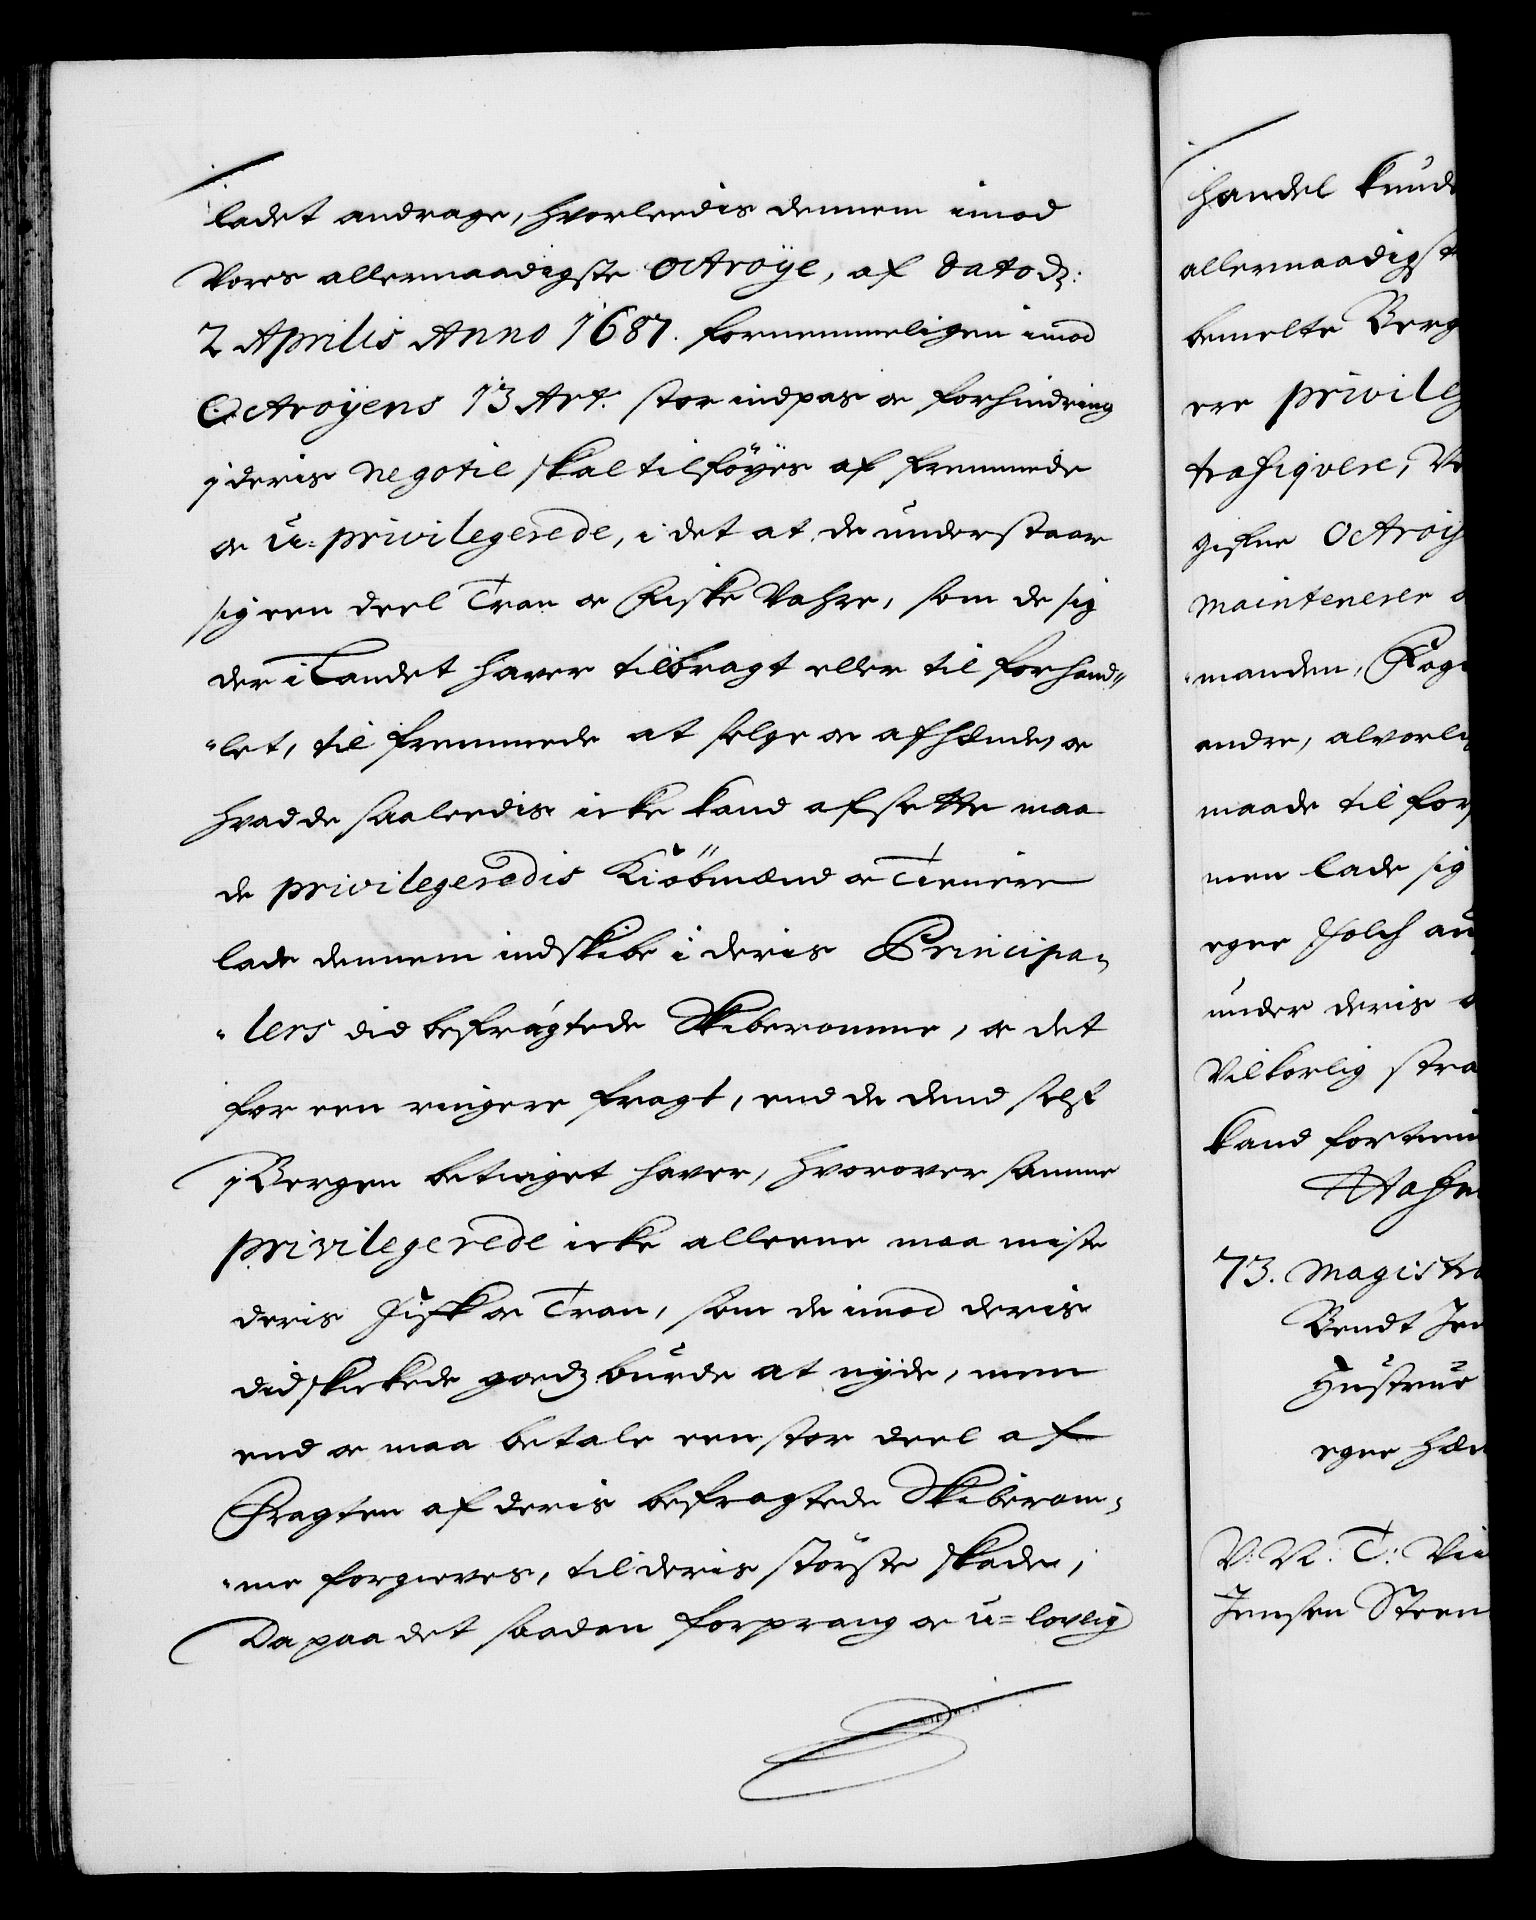 ladet andrage, hvorleedis dennem imod
Vores allernaadigste Octroye, af dato d:
2 Aprilis Anno 1687. fornemmeligen imod
Octroyens 13 Art. stor indpas oc forhindring
j deris negotie skal tilföyes af fremmede
oc u-privilegerede, i det at de understaar
sig een deel Tran oc Fiske Vahre, som de sig
der i Landet haver tilbragt eller til forhand-
-let, til fremmede at selge oc afhænde, oc
hvad de saaleedis icke kand afsette maa
de privilegeredis Kiöbmænd oc Tienere
lade dennem indskibe i deris Principa-
-lers did befragtede Skiberomme, oc det
for een ringere fragt, end de dend self
j Bergen betinget haver, hvorover samme
privilegerede icke alleene maa miste
deris Fisk oc Tran, som de imod deris
didskickede goedz burde at nyde, men
end oc maa betale een stor deel af
Fragten af deris befragtede Skiberom-
-me forgieves, til deris störste skade,
Da paa det saadan forprang oc u-lovlig
handel kund
allernaadigst
bemelte Berg
ere privileg
trafiqvere, V
gifne Octroy
maintenerer
-manden, Fog
andre, alvorli
maade til for
men lade sig
egne Folch
under deris
Vilkorlig stra
kand
Hafn
73. Magistra
Bendt Jen
Hustrue
egne hæn
V. N. T: Vii
Jensen Steen